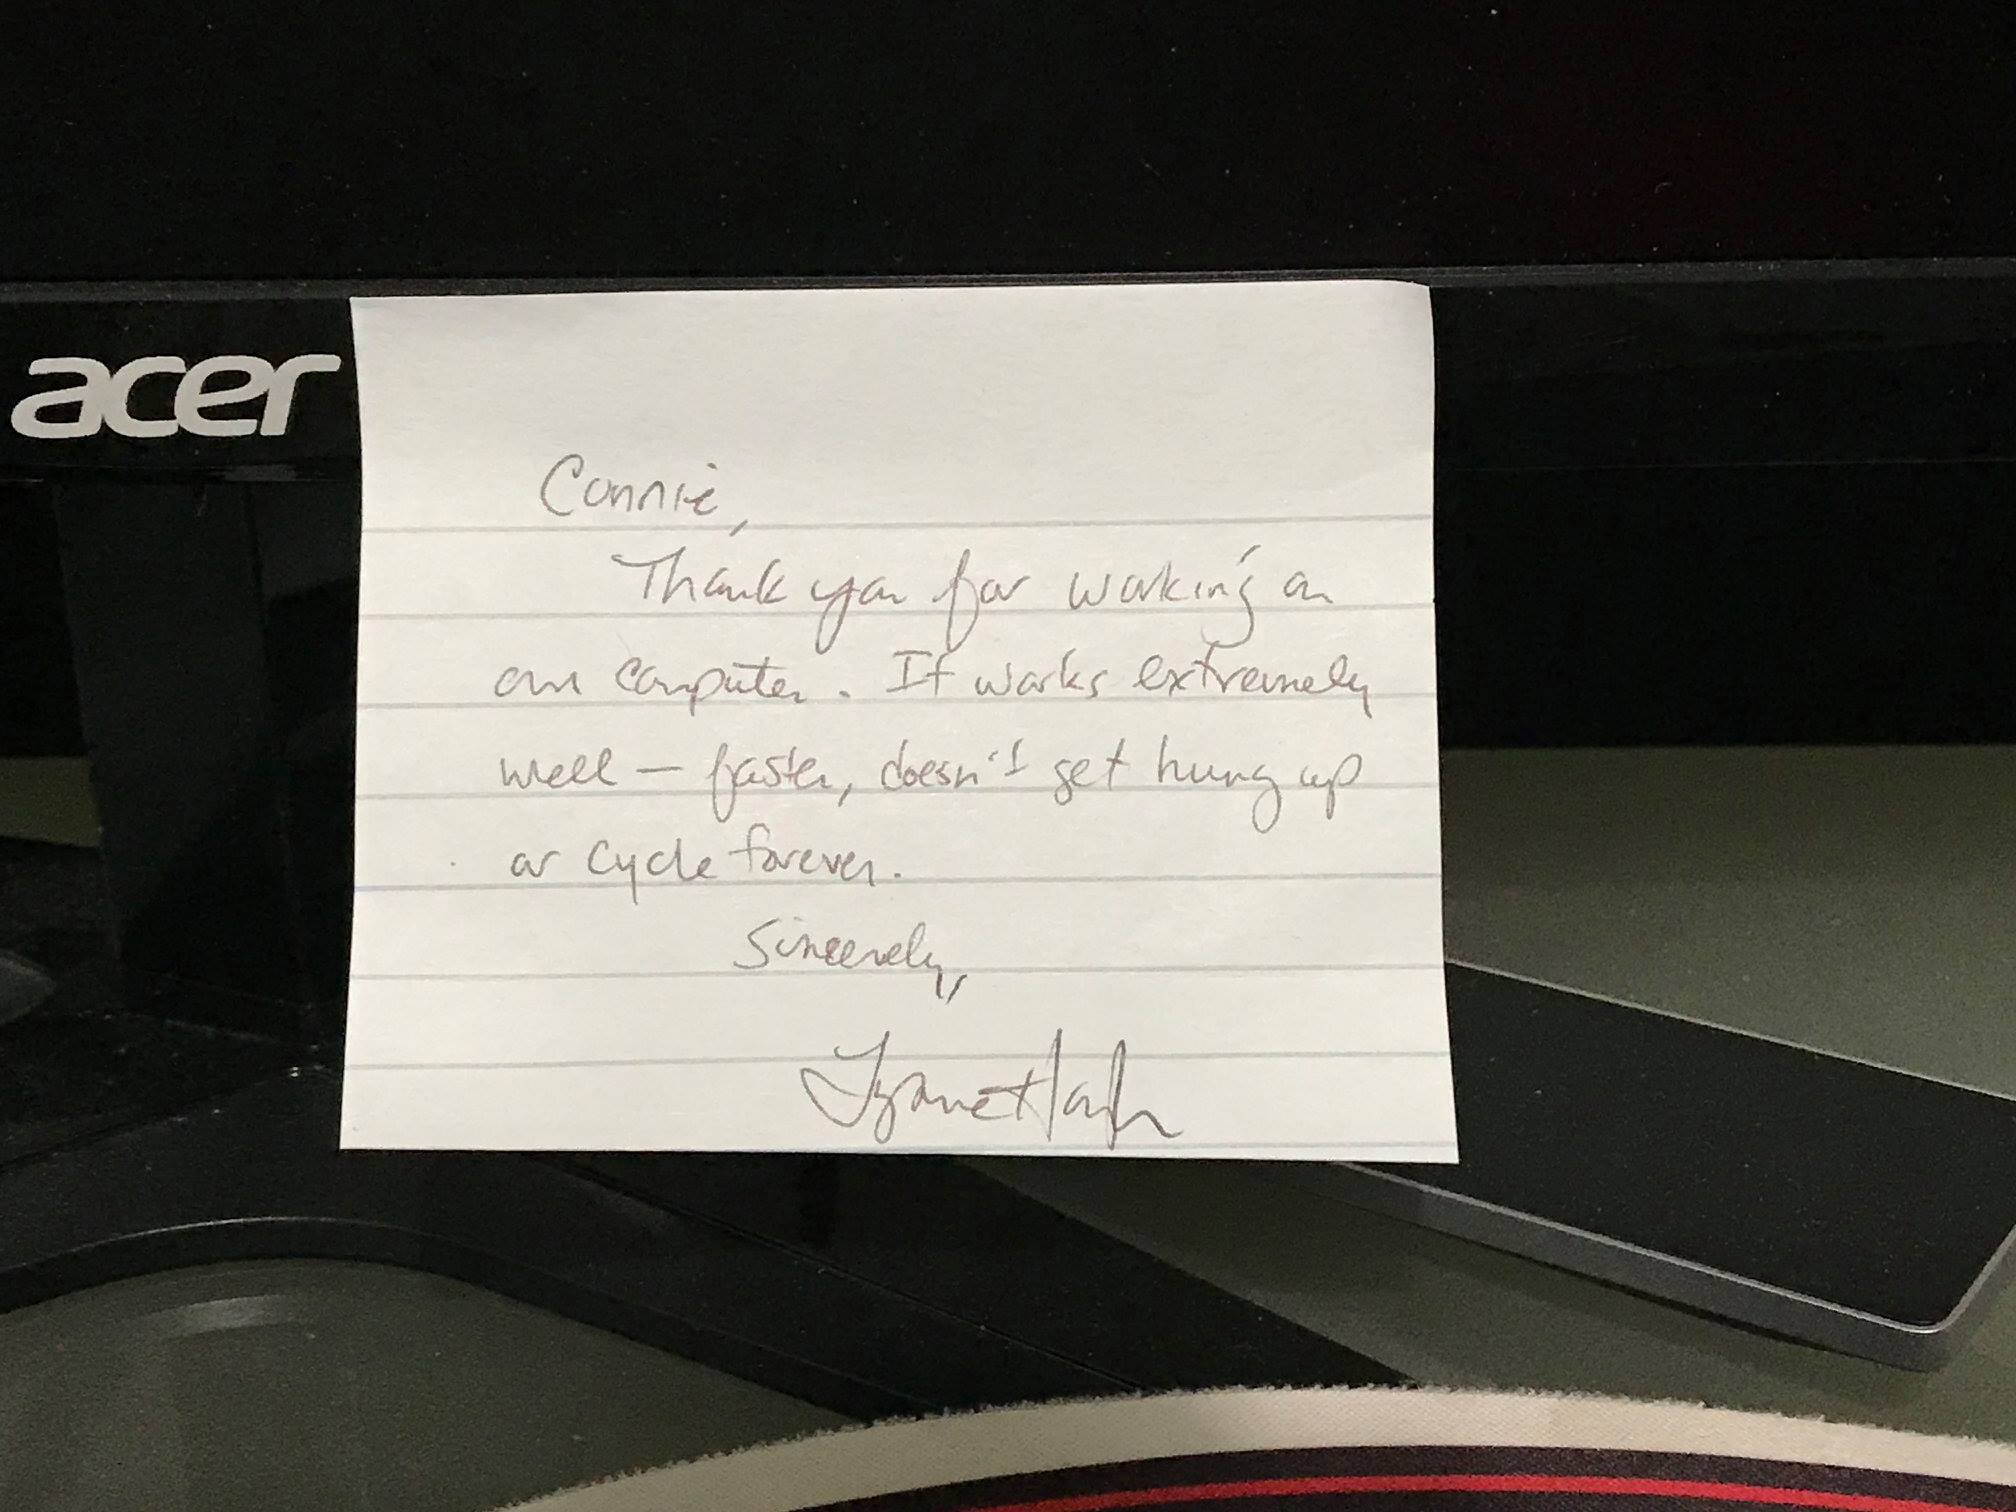 acer
Connie,
Thank you for working on
our computer. It works extremely
well — faster, doesn't get hung up
or cycle forever.
Sincerely,